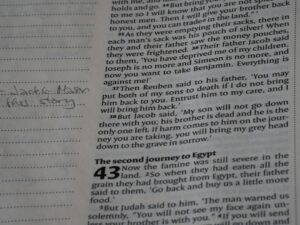 with me, and
holds and go. But bring your
to me so I will know that you are not spies
honest men. Then I will give your brother back
to you, and you can trade in the land.'
35As they were emptying their sacks, there in
each man's sack was his pouch of silver! When
they and their father saw the money pouches,
they were frightened. 36Their father Jacob said
to them, 'You have deprived me of my children.
Joseph is no more and Simeon is no more, and
now you want to take Benjamin. Everything is
against me!'
37Then Reuben said to his father, 'You may
put both of my sons to death if I do not bring
him back to you. Entrust him to my care, and I
will bring him back.'
38But Jacob said, 'My son will not go down
there with you; his brother is dead and he is the
only one left. If harm comes to him on the jour-
ney you are taking, you will bring my grey head
down to the grave in sorrow.'
The second journey to Egypt
43 Now the famine was still severe in the
land. 2So when they had eaten all the
grain they had brought from Egypt, their father
said to them, 'Go back and buy us a little more
food.'
3But Judah said to him, 'The man warned us
solemnly, "You will not see my face again un-
less your brother is with you." 4If you will send
will go down and
story